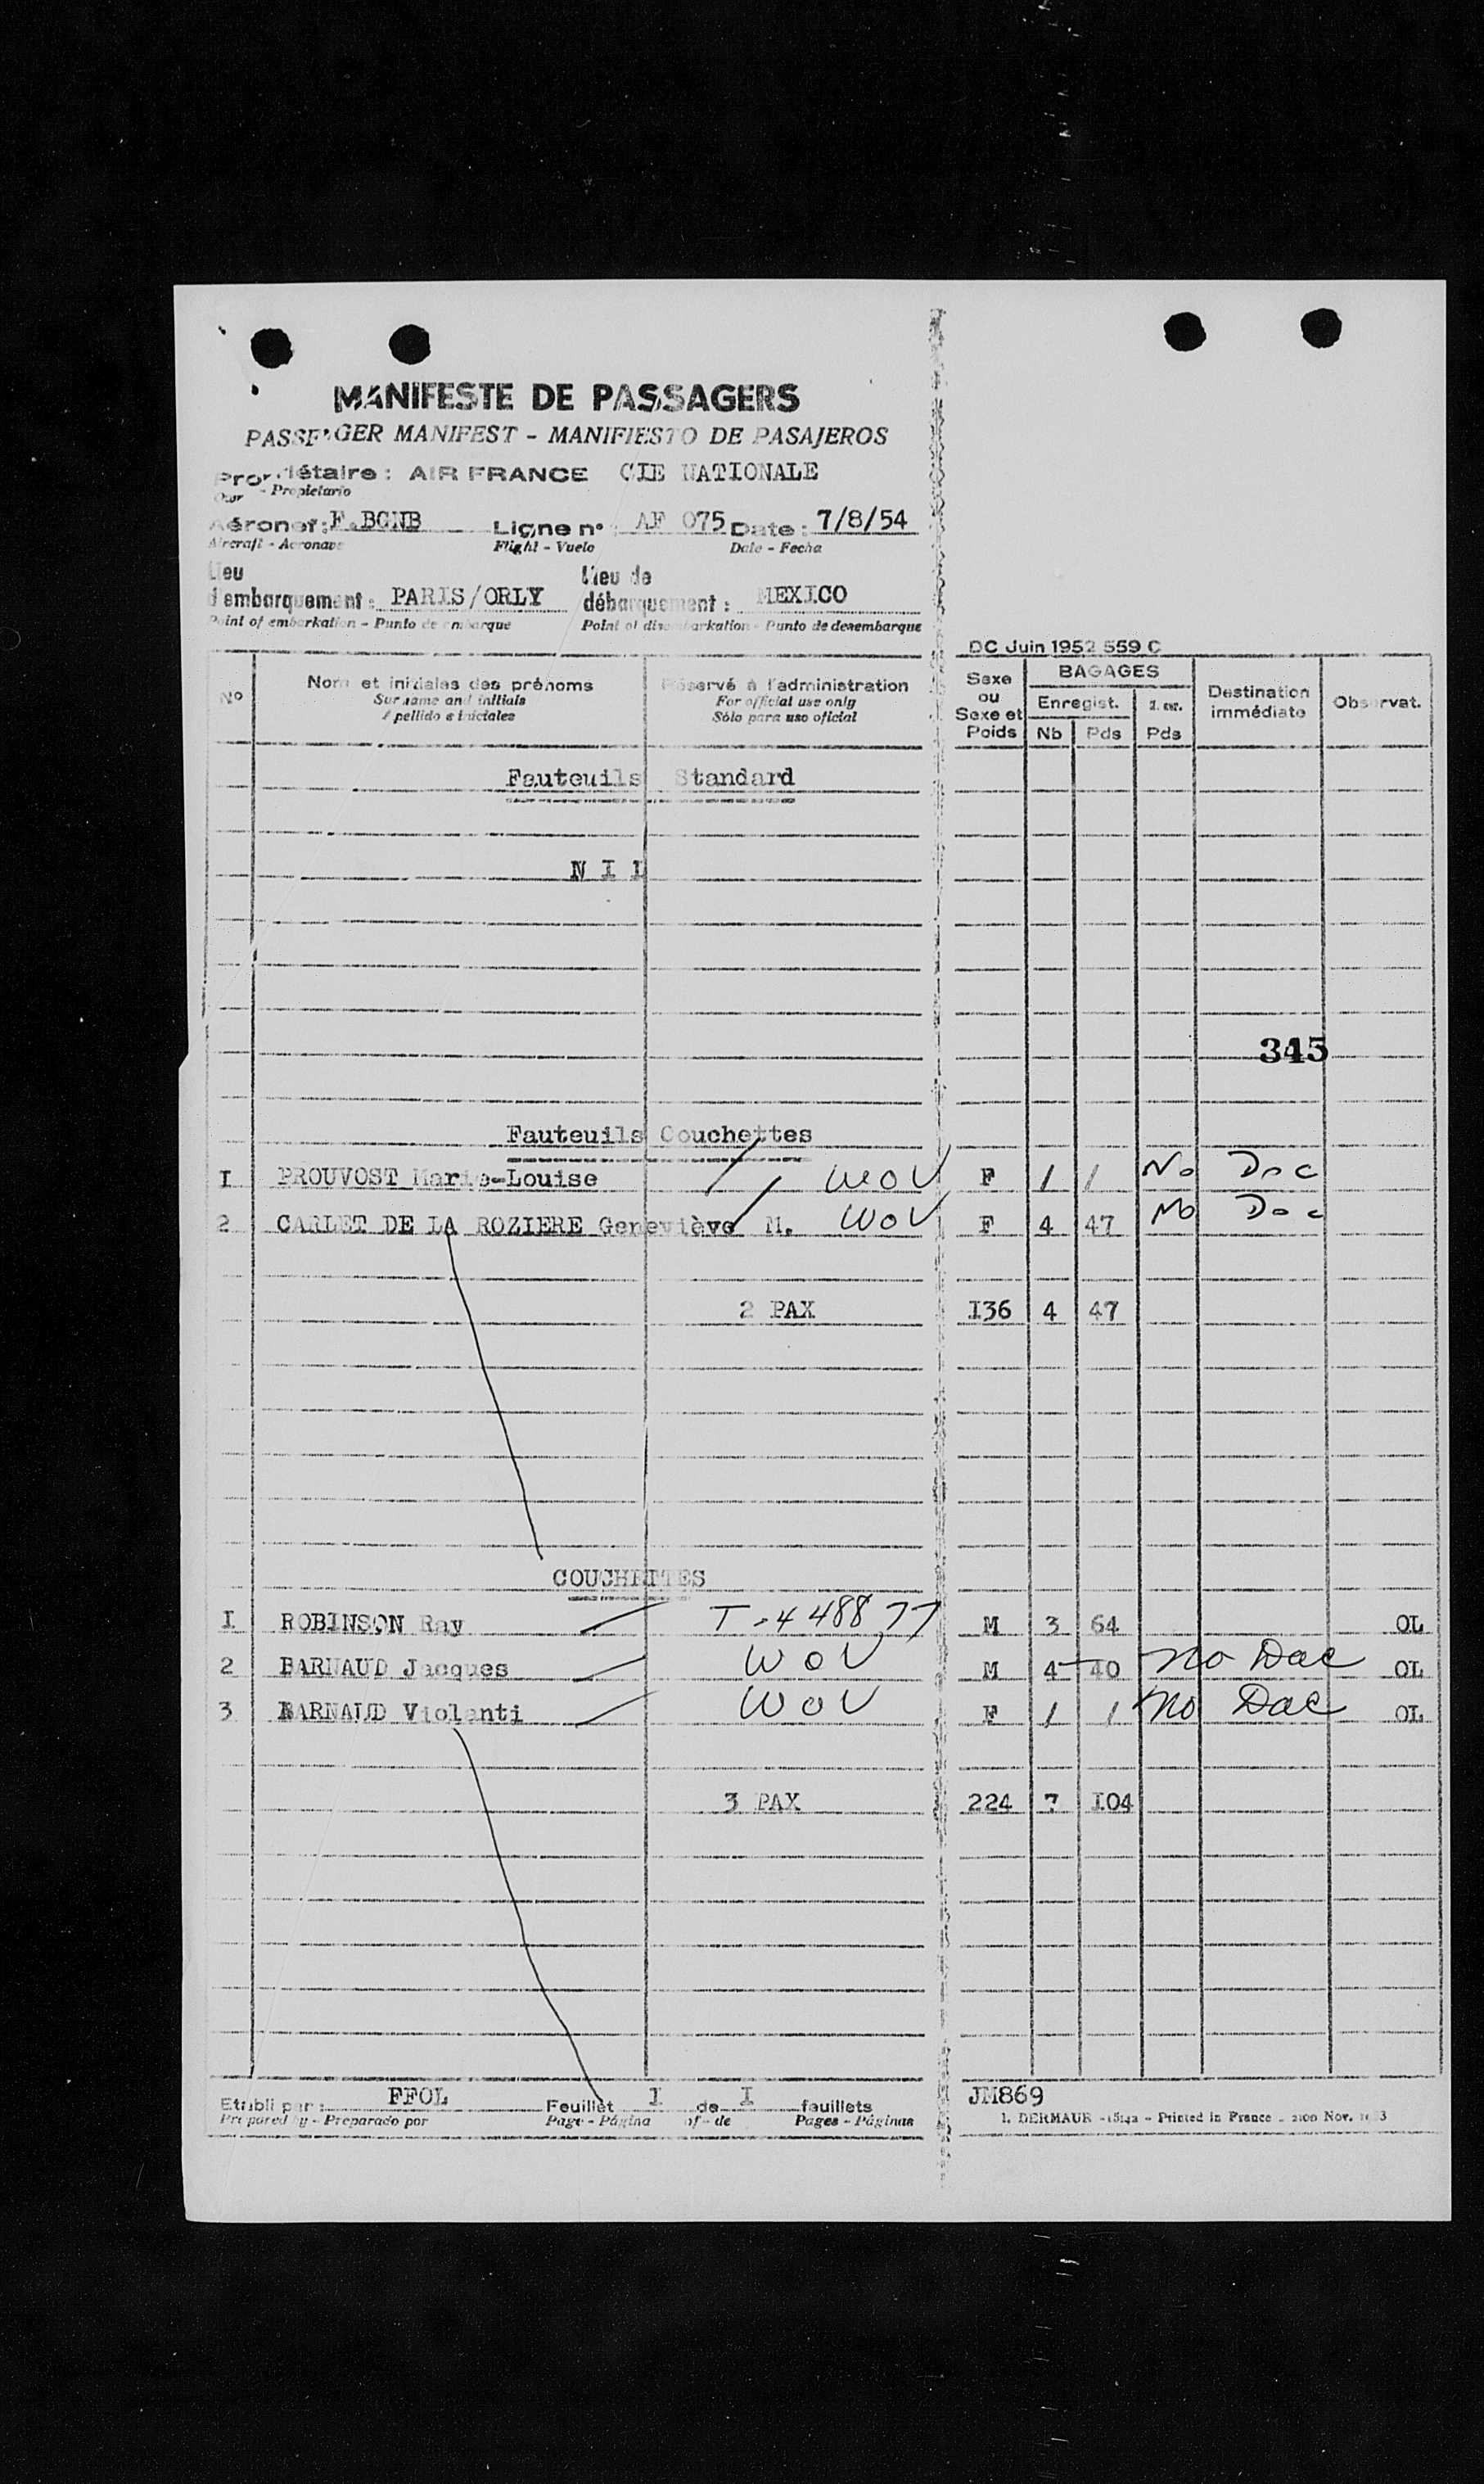 MANIFESTE DE PASSAGERS
PASSENGER MANIFEST - MANIFIESTO DE PASAJEROS
Propriétaire : AIR FRANCE CIE NATIONALE
- Propietario
Aéronef : F.BGNB Ligne n° AF 075 Date : 7/8/54
Aircraft - Aeronave Flight - Vuelo Date - Fecha
Lieu Lieu de
d'embarquement : PARIS/ORLY débarquement : MEXICO
Point of embarkation - Punto de embarque Point of disembarkation - Punto de desembarque
DC Juin 1952 559 C
N° Nom et initiales des prénoms Réservé à l'administration Sexe ou Sexe et Poids BAGAGES Destination immédiate Observat.
Surname and initials For official use only Enregist.
Apellido e iniciales Sólo para uso oficial Nb Pds Pds
Fauteuils Standard
N I L
345
Fauteuils Couchettes
I PROUVOST Marie-Louise WOV F / / No Doc
2 CARLET DE LA ROZIERE Geneviève M. WOV F 4 47 No Doc
2 PAX I36 4 47
COUCHETTES
I ROBINSON Ray T-448877 M 3 64 OL
2 BARNAUD Jacques WOV M 4 40 No Doc OL
3 BARNAUD Violenti WOV F / / No Doc OL
3 PAX 224 7 I04
Etabli par : FFOL Feuillet I de I feuillets JM869
Prepared by - Preparado por Page - Página of - de Pages - Páginas DERMAUR - Printed in France - Nov.